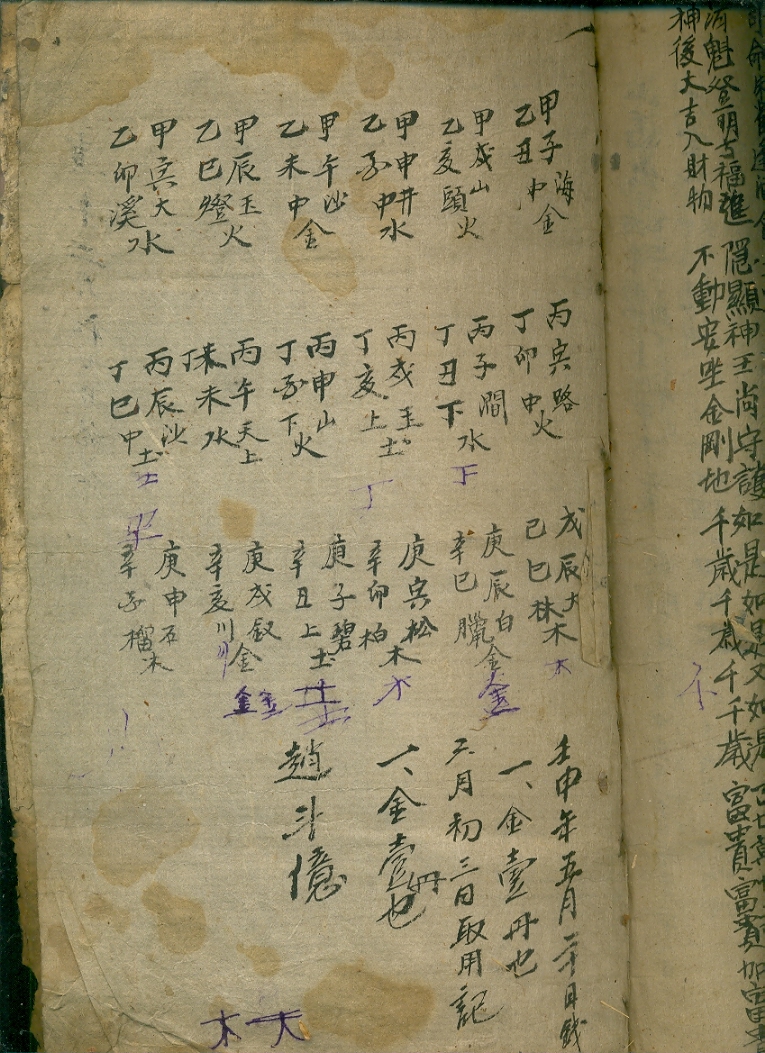 河魁登明與福進
隱顯神王尚守護
如是如是又如是
富貴富貴加富貴
神後大吉入財物
不動安坐金剛地
千歲千歲千千歲
甲子海
乙丑中金
甲戌山
乙亥頭火
甲申井
乙酉中水
甲午沙
乙未中金
甲辰玉
乙巳燈火
甲寅大
乙卯溪水
丙寅路
丁卯中火
丙子澗
丁丑下水
丙戌王
丁亥上土
丙申山
丁酉下火
丙午天上
丁未水
丙辰沙
丁巳中土
戊辰大
己巳林木
庚辰白
辛巳臘金
庚寅松
辛卯柏木
庚子碧
辛丑上土
庚戌釵
辛亥川金
庚申石
辛酉榴木
壬申年五月二十日錢
一、金壹冊也
三月初三日取用記
一、金壹冊也
趙斗億
大木